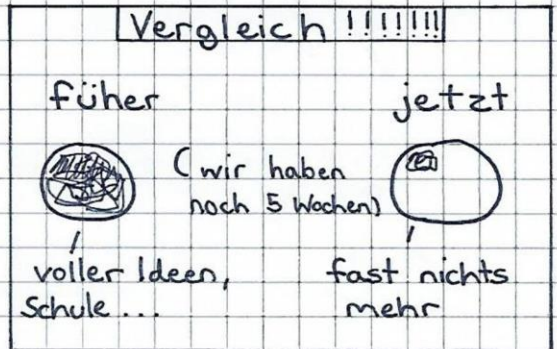 Vergleich !!!!!!!
füher
jetzt
(wir haben
noch 5 Wochen)
voller Ideen,
Schule...
fast nichts
mehr